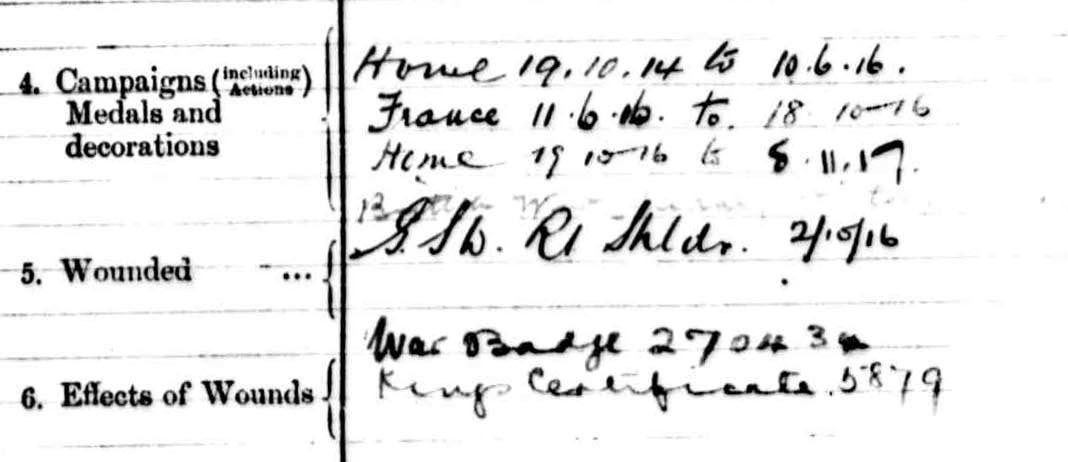 4. Campaigns (including Actions) Medals and decorations
Home 19.10.14 to 10.6.16.
France 11.6.16. to. 18 10-16
Home 19 10-16 to 8.11.17.
5. Wounded ...
G.S.W. Rt Shldr. 2/10/16
War Badge
Kings Certificate. 5879
6. Effects of Wounds